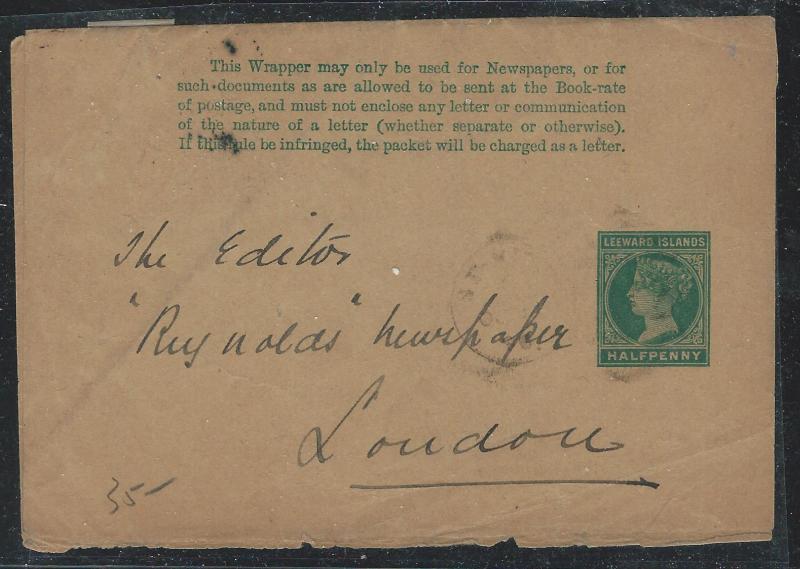 This Wrapper may only be used for Newspapers, or for
such documents as are allowed to be sent at the Book-rate
of postage, and must not enclose any letter or communication
of the nature of a letter (whether separate or otherwise).
If this rule be infringed, the packet will be charged as a letter.
The Editor
"Reynolds" Newspaper
London
LEEWARD ISLANDS
HALFPENNY
35